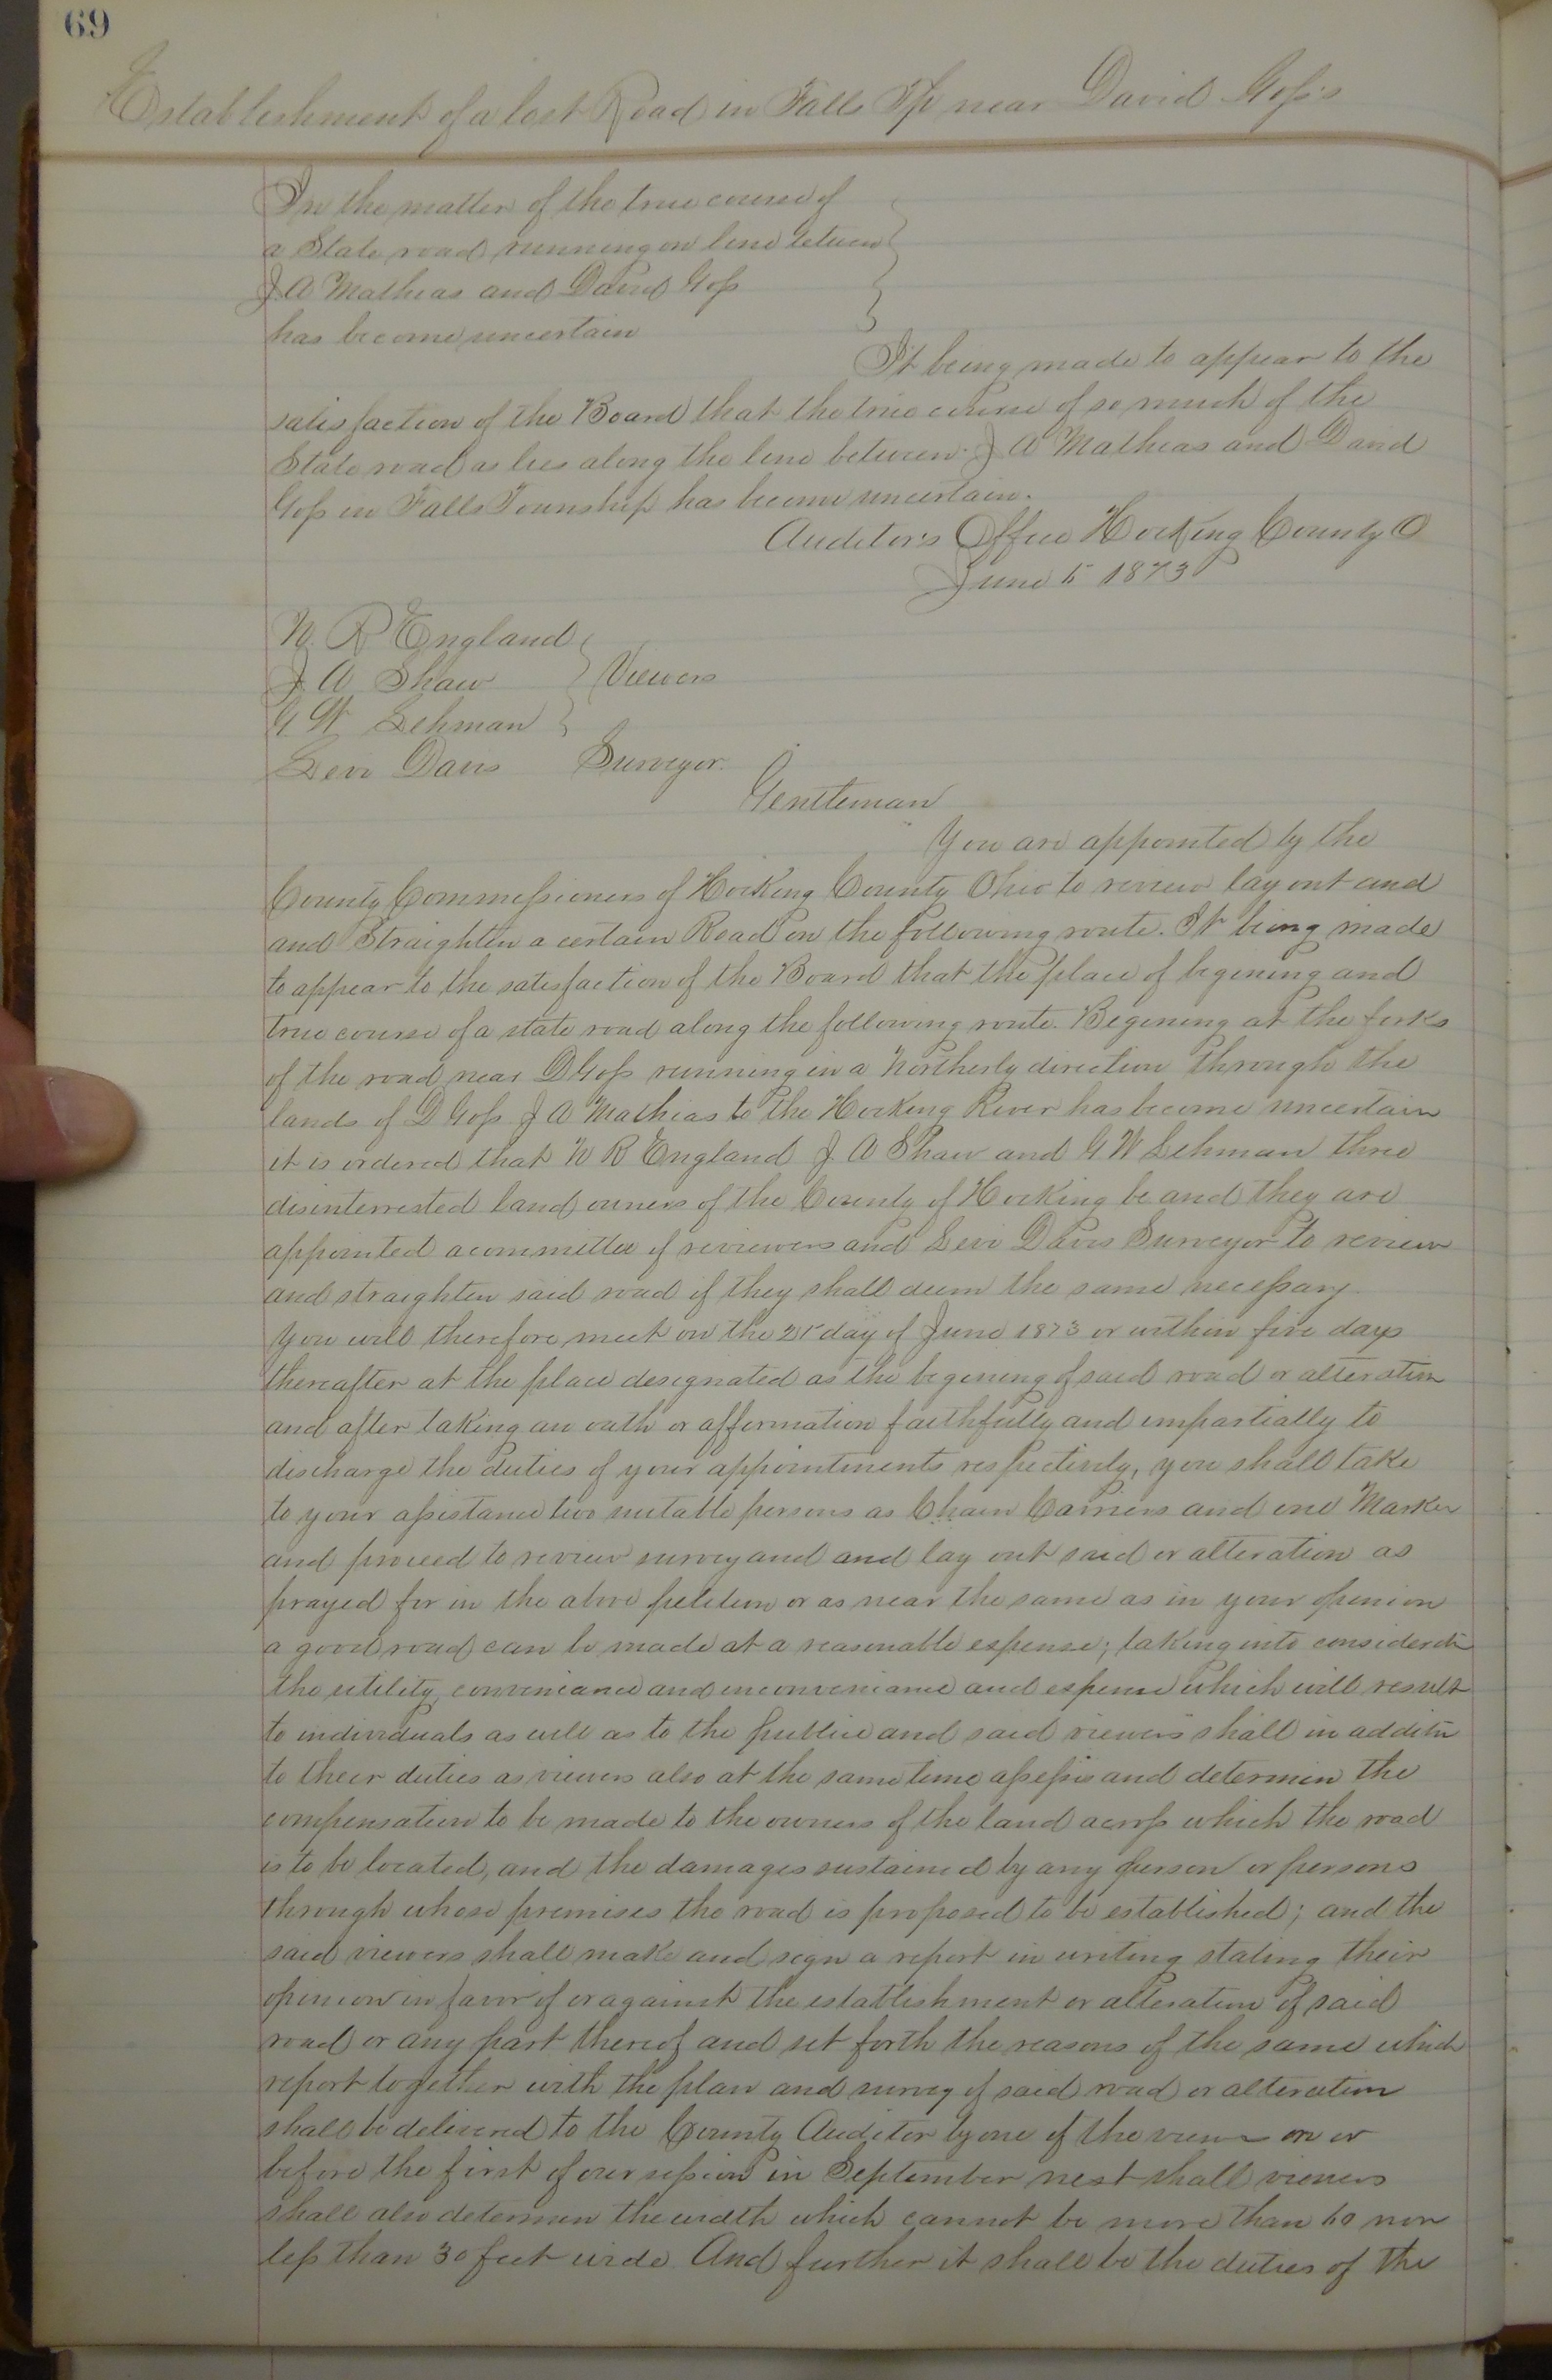 69
Establishment of a lost Road in Falls Tp near David Goss's
In the matter of the true course of
a State road running on line between
J A Mathias and David Goss
has become uncertain
It being made to appear to the
satisfaction of the Board that the true course of so much of the
State road as lies along the line between J A Mathias and David
Goss in Falls Township has become uncertain.
Auditor's Office Hocking County O
June 5 1873
W. R England
J. A Shaw Viewers
G W Lehman
Levi Davis Surveyor.
Gentleman
You are appointed by the
County Commissioners of Hocking County Ohio to review lay out and
and Straighten a certain Road on the following route. It being made
to appear to the satisfaction of the Board that the place of begining and
true course of a state road along the following route. Begining at the forks
of the road near D Goss running in a Northerly direction through the
lands of D Goss J A Mathias to the Hocking River has become uncertain
it is ordered that W R England J. A Shaw and G W Lehman three
disinterrested land owners of the County of Hocking be and they are
appointed a committee of reviewers and Levi Davis Surveyor to review
and straighten said road if they shall deem the same necessary
You will therefore meet on the day of June 1873 or within five days
thereafter at the place designated as the begining of said road or alteration
and after taking an oath or afformation faithfully and impartially to
discharge the duties of your appointments respectively, you shall take
to your assistance two suitable persons as Chain Carriers and one Marker
and proceed to review survey and and lay out said or alteration as
prayed for in the above petition or as near the same as in your openion
a good road can be made at a reasonable expense; taking into considerati
the utility, conveniance and inconveniance and expense which will result
to individuals as well as to the public and said viewers shall in additn
to their duties as viewers also at the same time assess and determin the
compensation to be made to the owners of the land across which the road
is to be located, and the damages sustained by any person or persons
through whose premises the road is proposed to be established; and the
said viewers shall make and sign a report in writing stating their
openion in favor of or against the establishment or alteration of said
road or any part thereof and set forth the reasons of the same which
report together with the plan and survey of said road or alteration
shall be delivered to the County Auditor by one of the on or
before the first of our session in September next shall viewers
shall also determin the width which cannot be more than 60 nor
less than 30 feet wide And further it shall be the duties of the